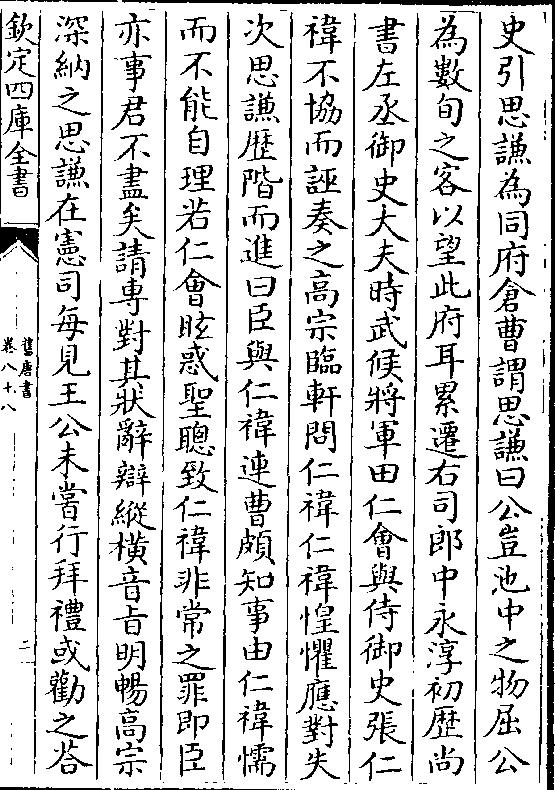 史引思謙為同府倉曹謂思謙曰公豈池中之物屈公
為數旬之客以望此府耳累遷右司郎中永淳初歴尚
書左丞御史大夫時武候將軍田仁會與侍御史張仁
禕不協而誣奏之高宗臨軒問仁禕仁禕惶懼應對失
次思謙歴階而進曰臣與仁禕連曹頗知事由仁禕懦
而不能自理若仁會眩惑聖聰致仁禕非常之罪即臣
亦事君不盡矣請專對其狀辭辯縱橫音旨明暢高宗
深納之思謙在憲司每見王公未嘗行拜禮或勸之荅
欽定四庫全書
舊唐書
卷八十八
二